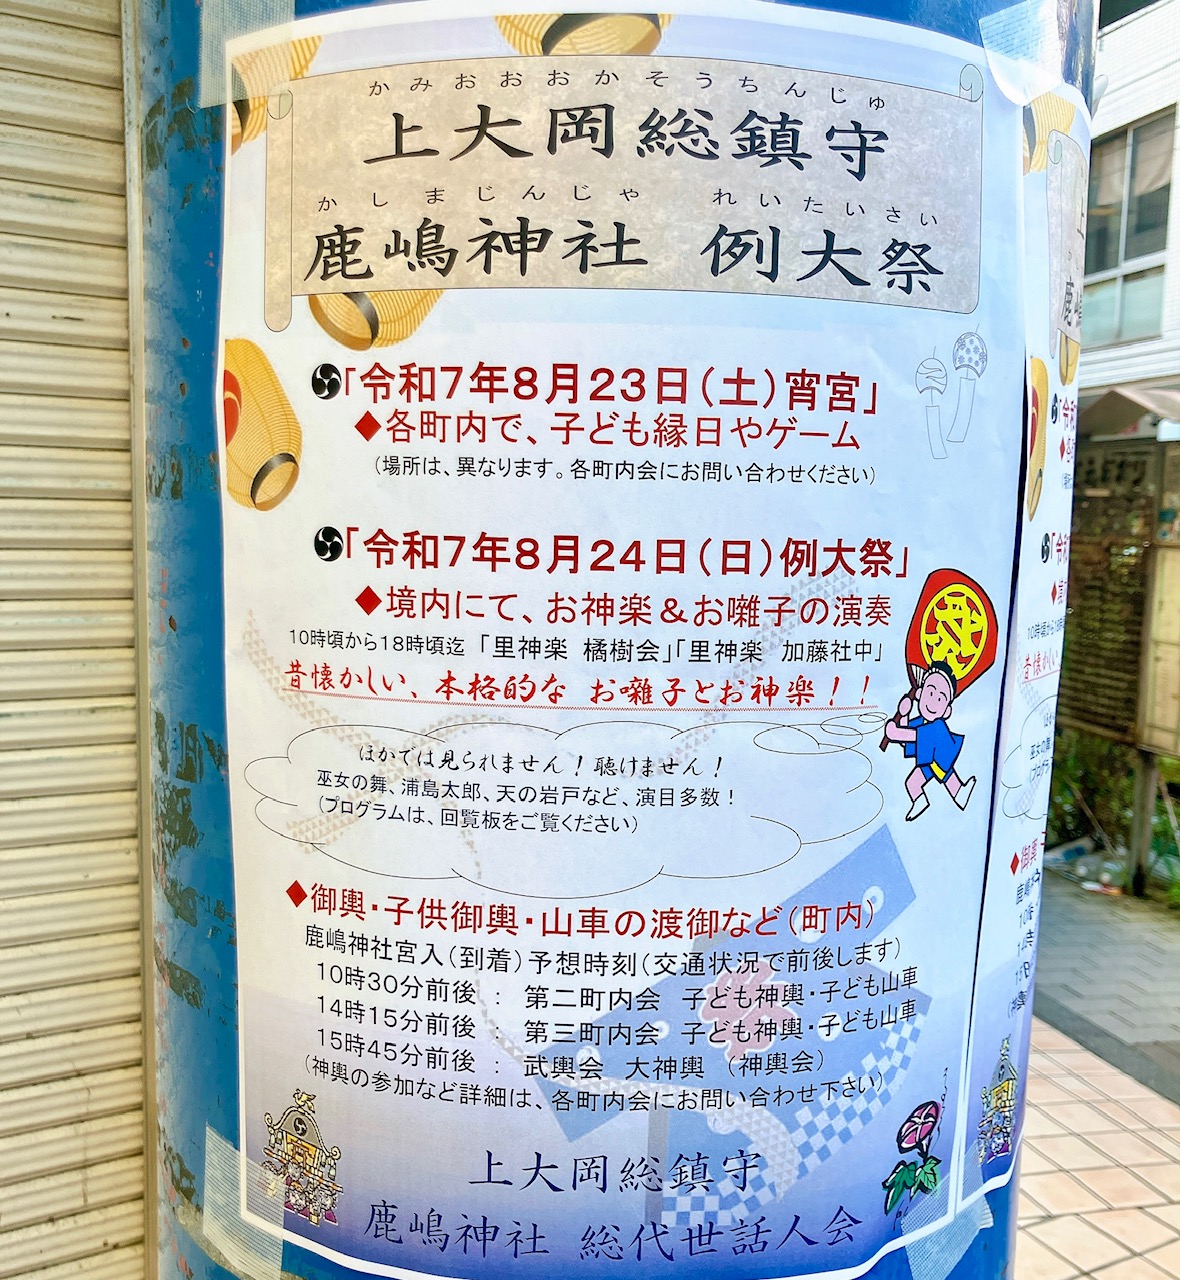 かみおおおかそうちんじゅ
上大岡総鎮守
かしまじんじゃ れいたいさい
鹿嶋神社 例大祭
「令和7年8月23日(土)宵宮」
◆各町内で、子ども縁日やゲーム
(場所は、異なります。各町内会にお問い合わせください)
「令和7年8月24日(日)例大祭」
◆境内にて、お神楽&お囃子の演奏
10時頃から18時頃迄 「里神楽 橘樹会」「里神楽 加藤社中」
昔懐かしい、本格的な お囃子とお神楽!!
祭
ほかでは見られません!聴けません!
巫女の舞、浦島太郎、天の岩戸など、演目多数!
(プログラムは、回覧板をご覧ください)
◆御輿・子供御輿・山車の渡御など(町内)
鹿嶋神社宮入(到着)予想時刻(交通状況で前後します)
10時30分前後 : 第二町内会 子ども神輿・子ども山車
14時15分前後 : 第三町内会 子ども神輿・子ども山車
15時45分前後 : 武輿会 大神輿 (神輿会)
(神輿の参加など詳細は、各町内会にお問い合わせ下さい)
上大岡総鎮守
鹿嶋神社 総代世話人会